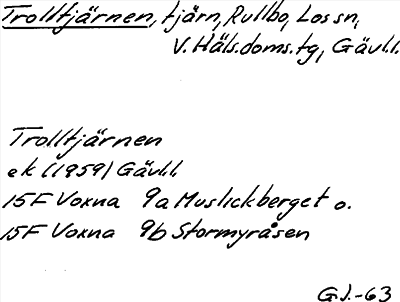 Trolltjärnen, tjärn, Rullbo, Los sn,
V. Häls. doms. tg, Gävl.l.
Trolltjärnen
ek (1959) Gävl.l
15F Voxna 9a Muslickberget o.
15F Voxna 9b Stormyråsen
G.J.-63